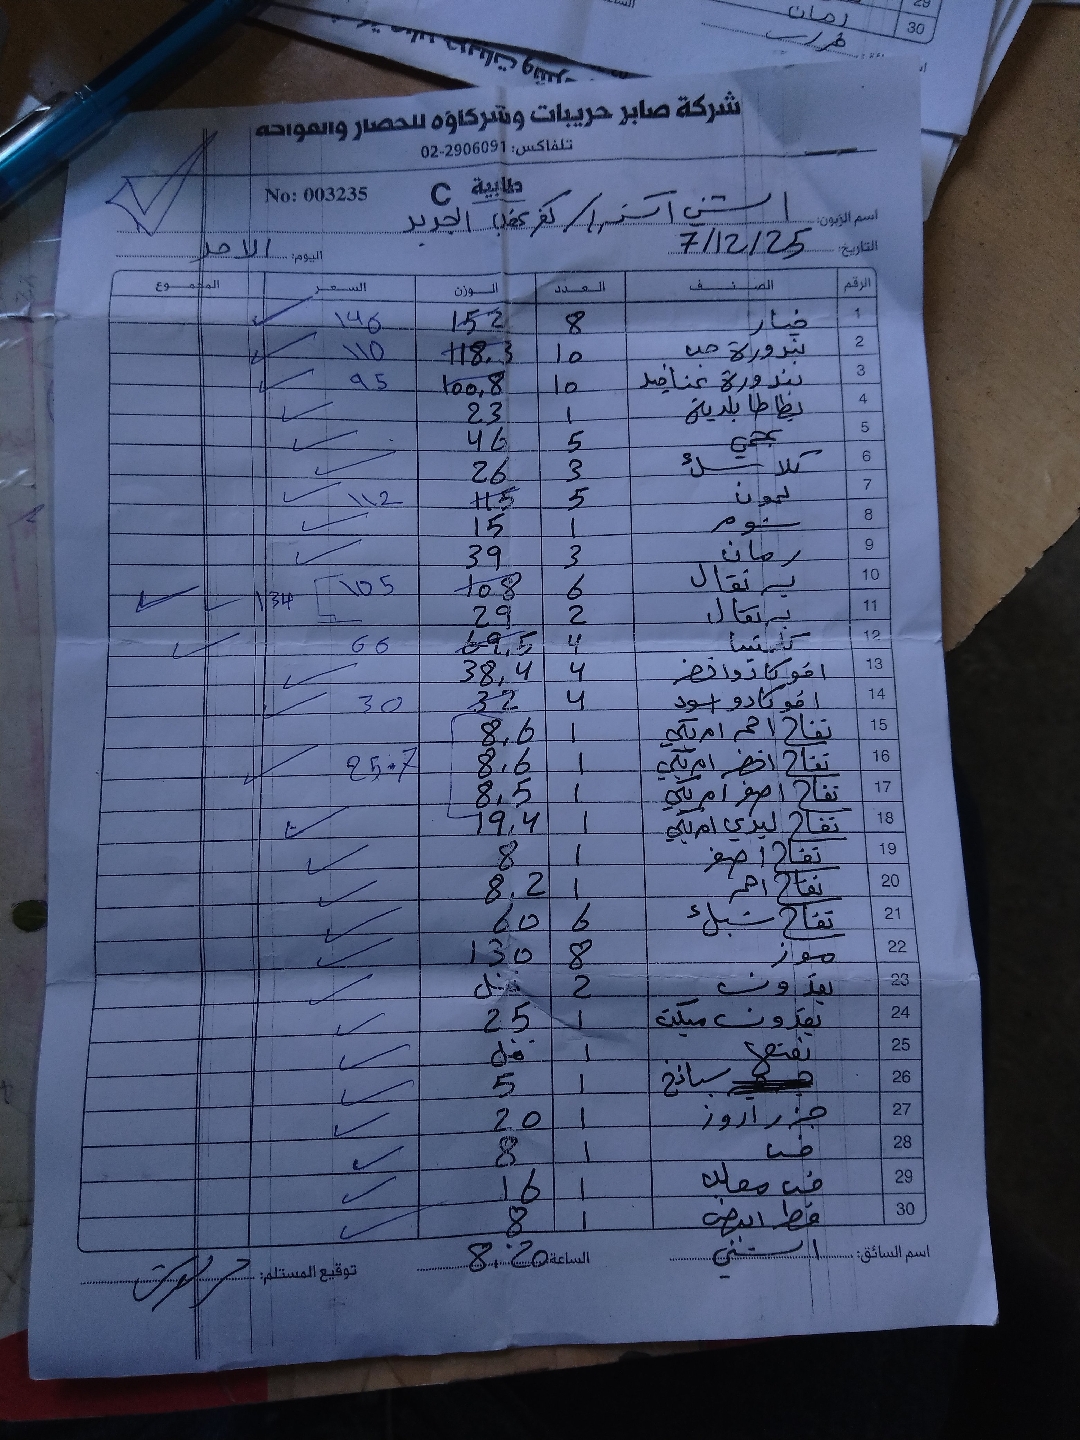 30
رمان
شركة صابر حريبات وشركاؤه للخضار والفواكه
تلفاكس: 02-2906091
طلبية C No: 003235
اسم الزبون: / كفر عقب الجديد
التاريخ: 7/12/25 اليوم: الاحد
الرقم الصنف العدد الوزن السعر المجموع
1 خيار 8 152 146
2 بندورة حب 10 118.3 110
3 بندورة عناقيد 10 100.8 95
4 بطاطا بلدية 1 23
5 5 46
6 3 26
7 ليمون 5 115 112
8 ثوم 1 15
9 رمان 3 39
10 برتقال 6 108 105
11 برتقال 2 29 134
12 4 69.5 66
13 افوكادو اخضر 4 38,4
14 افوكادو اسود 4 32 30
15 تفاح احمر امريكي 1 8,6
16 تفاح اخضر امريكي 1 8,6 25.7
17 تفاح اصفر امريكي 1 8,5
18 تفاح ليدي امريكي 1 19,4
19 تفاح اصفر 1 8
20 تفاح احمر 1 8.2
21 تفاح 6 60
22 موز 8 130
23 بقدونس 2
24 بقدونس 1 25
25 نعنع 1
26 سبانخ 1 5
27 جزر اروز 1 20
28 خس 1 8
29 1 16
30 1 8
اسم السائق: الساعة: 8:20 توقيع المستلم: